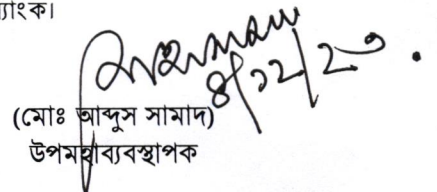 ্যাংক।
৪/১২/২৩
(মোঃ আব্দুস সামাদ)
উপমহাব্যবস্থাপক